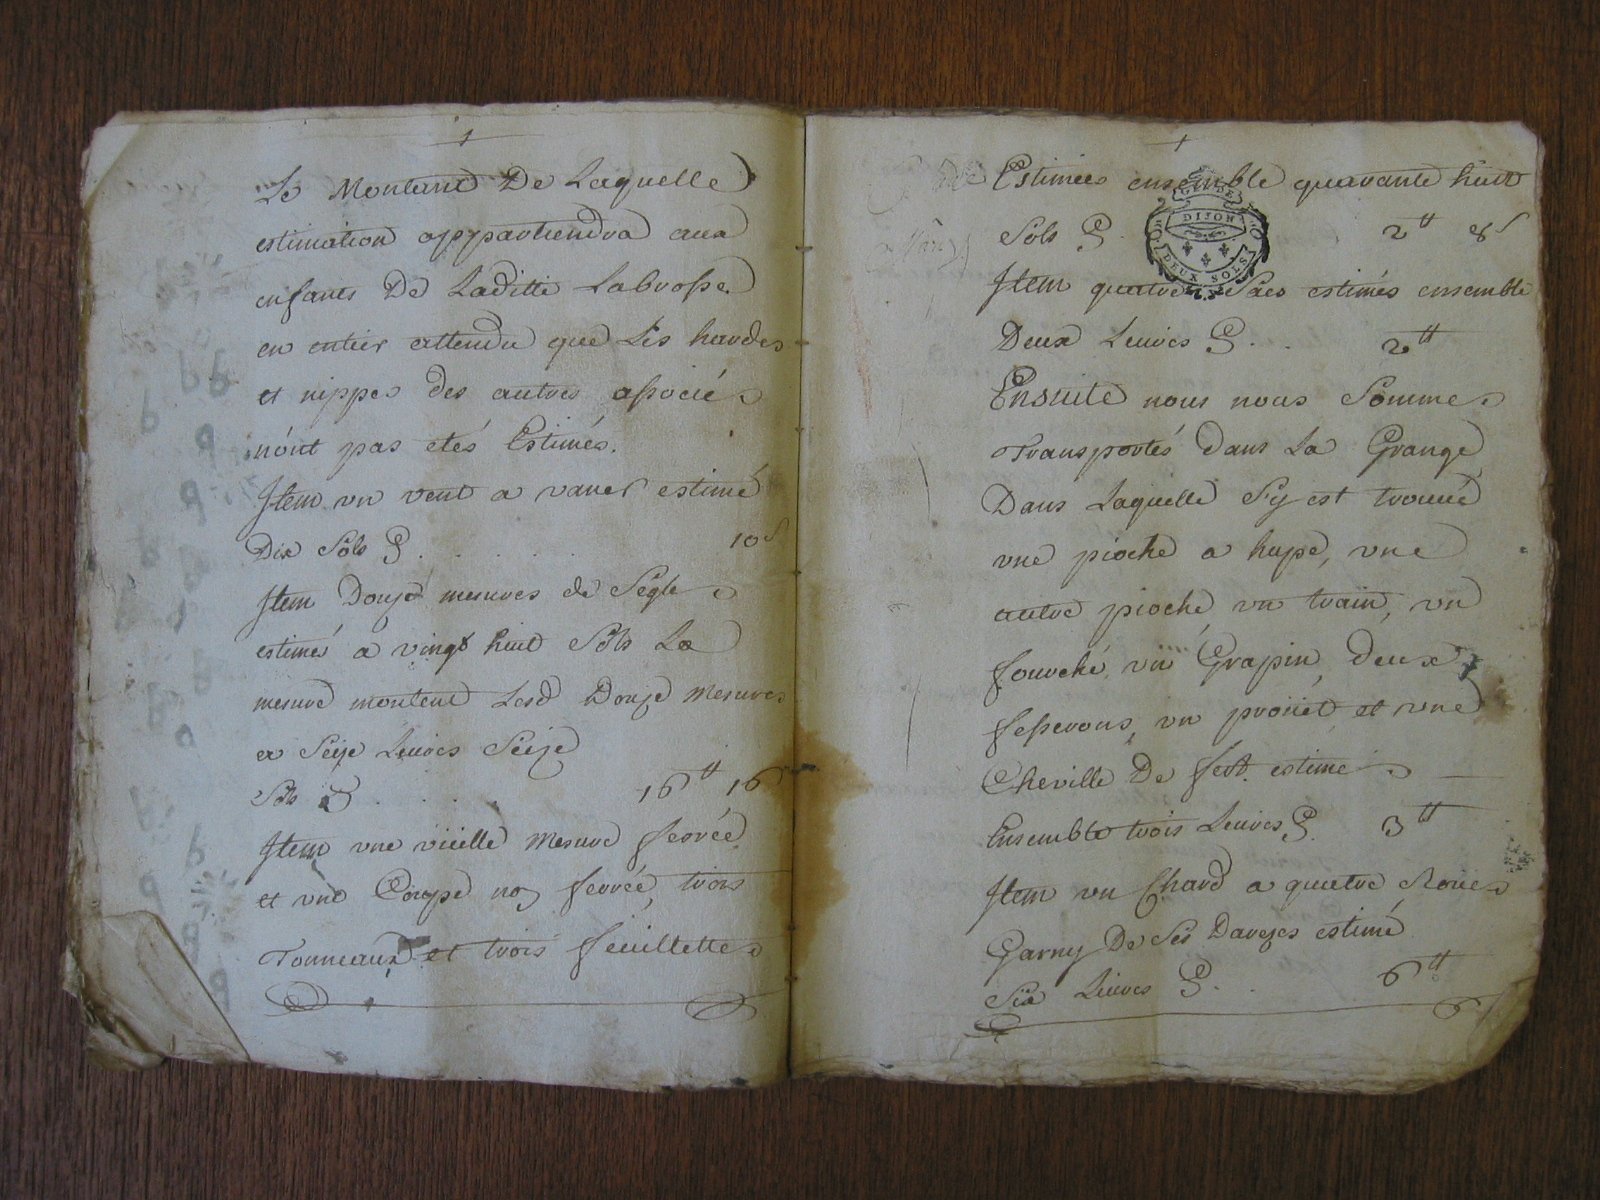 Le Montant De Laquelle
estimation appartiendra aux
enfants De Laditte Labrosse
en entier attendu que Les hardes
et nippes des autres associés
n'ont pas etés Estimés.
Item un vent a vaner estimé
Dix Sols 10s
Item Douze mesures de Segle
estimé a vingt huit Sols La
mesure montent Lesd Douze mesures
a Seize Livres Seize
Sols 16tt 16
Item une vieille mesure ferrée
et une Coupe non ferrée, trois
Tonneaux et trois feuillettes
Estimées ensemble quarante huit
Sols 2tt 8s
DIJON
DEUX SOLS
Item quatre Sacs estimés ensemble
Deux Livres 2tt
Ensuite nous nous Sommes
Transportés dans La Grange
Dans Laquelle S'y est trouvé
une pioche a hape, une
autre pioche, un train, un
fourché, un Grapin, deux
fesserons, un proüet et une
Cheville De fert estimé
Ensemble trois Livres 3tt
Item un Chard a quatre Roües
Garny De Ses Davezes estimé
Six Livres 6tt